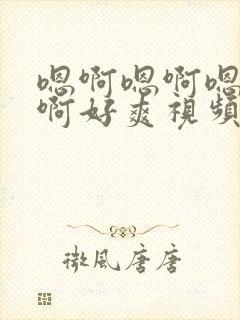 嗯啊嗯啊嗯
啊好爽視頻
微風唐唐